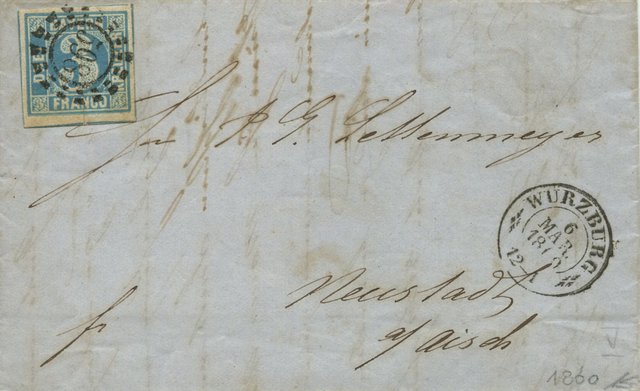 3
FRANCO
P. G. Lettenmeyer
WÜRZBURG
6
MAR.
1860
12
Neustadt
a/Aisch
fr
1860